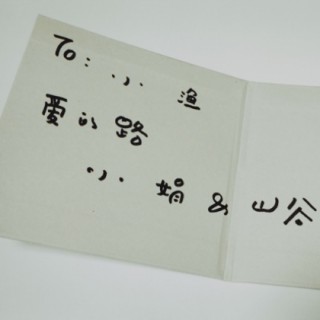 To: 小 渔
爱的路
小 娟 & 山谷